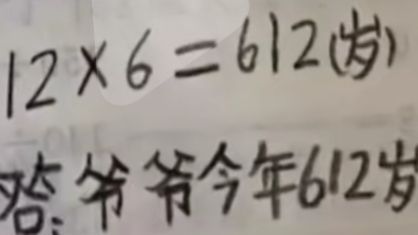 12×6=612(岁)
答:爷爷今年612岁